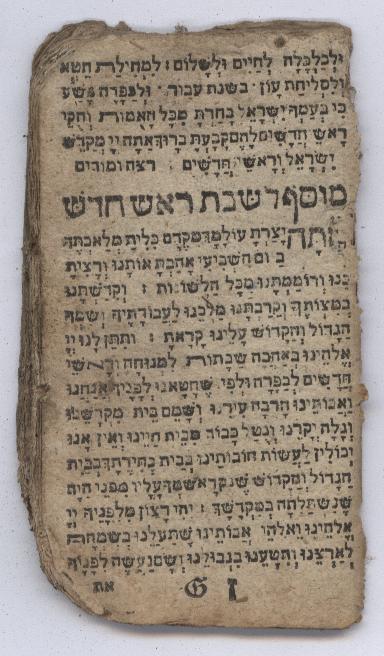 וּלְכַלְכָּלָה לְחַיִּים וּלְשָׁלוֹם : לִמְחִילַת חֵטְא
וְלִסְלִיחַת עָוֹן : בשנת עבור . וּלְכַפָּרַת פֶּשַׁע
כִּי בְעַמְּךָ יִשְׂרָאֵל בָּחַרְתָּ מִכָּל הָאֻמּוֹת וְחֻקֵּי
רָאשֵׁי חֳדָשִׁים לָהֶם קָבָעְתָּ בָּרוּךְ אַתָּה יְיָ מְקַדֵּשׁ
יִשְׂרָאֵל וְרָאשֵׁי חֳדָשִׁים : רצה ומודים
מוסף דשבת ראש חדש
אַתָּה יָצַרְתָּ עוֹלָמְךָ מִקֶּדֶם כִּלִּיתָ מְלַאכְתְּךָ
בַּיוֹם הַשְּׁבִיעִי אָהַבְתָּ אוֹתָנוּ וְרָצִיתָ
בָּנוּ וְרוֹמַמְתָּנוּ מִכָּל הַלְּשׁוֹנוֹת : וְקִדַּשְׁתָּנוּ
בְּמִצְוֹתֶיךָ וְקֵרַבְתָּנוּ מַלְכֵּנוּ לַעֲבוֹדָתֶיךָ וְשִׁמְךָ
הַגָּדוֹל וְהַקָּדוֹשׁ עָלֵינוּ קָרָאתָ : וַתִּתֶּן לָנוּ יְיָ
אֱלֹהֵינוּ בְּאַהֲבָה שַׁבָּתוֹת לִמְנוּחָה וְרָאשֵׁי
חֳדָשִׁים לְכַפָּרָה וּלְפִי שֶׁחָטָאנוּ לְפָנֶיךָ אֲנַחְנוּ
וַאֲבוֹתֵינוּ חָרְבָה עִירֵנוּ וְשָׁמֵם בֵּית מִקְדָּשֵׁנוּ
וְגָלָה יְקָרֵנוּ וְנֻטַּל כָּבוֹד מִבֵּית חַיֵּינוּ וְאֵין אָנוּ
יְכוֹלִין לַעֲשׂוֹת חוֹבוֹתֵינוּ בְּבֵית בְּחִירָתֶךָ בַּבַּיִת
הַגָּדוֹל וְהַקָּדוֹשׁ שֶׁנִּקְרָא שִׁמְךָ עָלָיו מִפְּנֵי הַיָּד
שֶׁנִּשְׁתַּלְּחָה בְּמִקְדָּשֶׁךָ : יְהִי רָצוֹן מִלְּפָנֶיךָ יְיָ
אֱלֹהֵינוּ וֵאלֹהֵי אֲבוֹתֵינוּ שֶׁתַּעֲלֵנוּ בְּשִׂמְחָה
לְאַרְצֵנוּ וְתִטָּעֵנוּ בִּגְבוּלֵנוּ וְשָׁם נַעֲשֶׂה לְפָנֶיךָ
ז G את